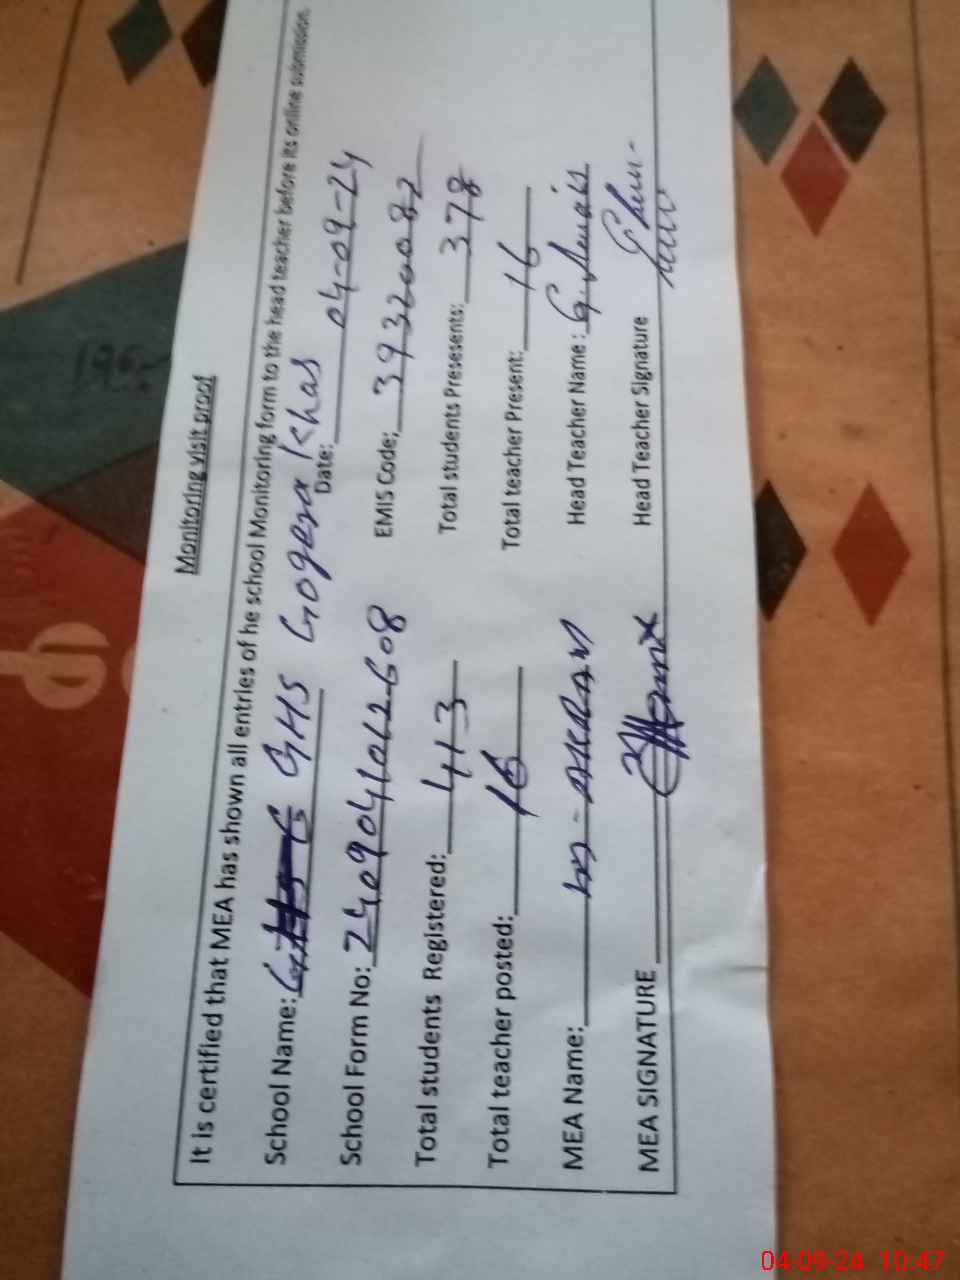 Monitoring visit proof
It is certified that MEA has shown all entries of he school Monitoring form to the head teacher before its online submission.
School Name: GHS Gogera Khas Date: 04-09-24
School Form No: 2409041012608 EMIS Code; 39320082
Total students Registered: 413 Total students Presesents: 378
Total teacher posted: 16 Total teacher Present: 16
MEA Name: M-AKRAM Head Teacher Name: G.
MEA SIGNATURE Head Teacher Signature
196/-
04-09-24 10:47